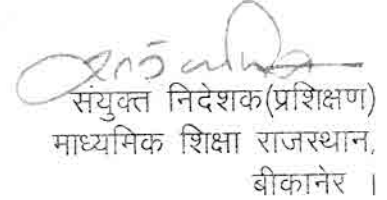 संयुक्त निदेशक(प्रशिक्षण)
माध्यमिक शिक्षा राजस्थान,
बीकानेर ।